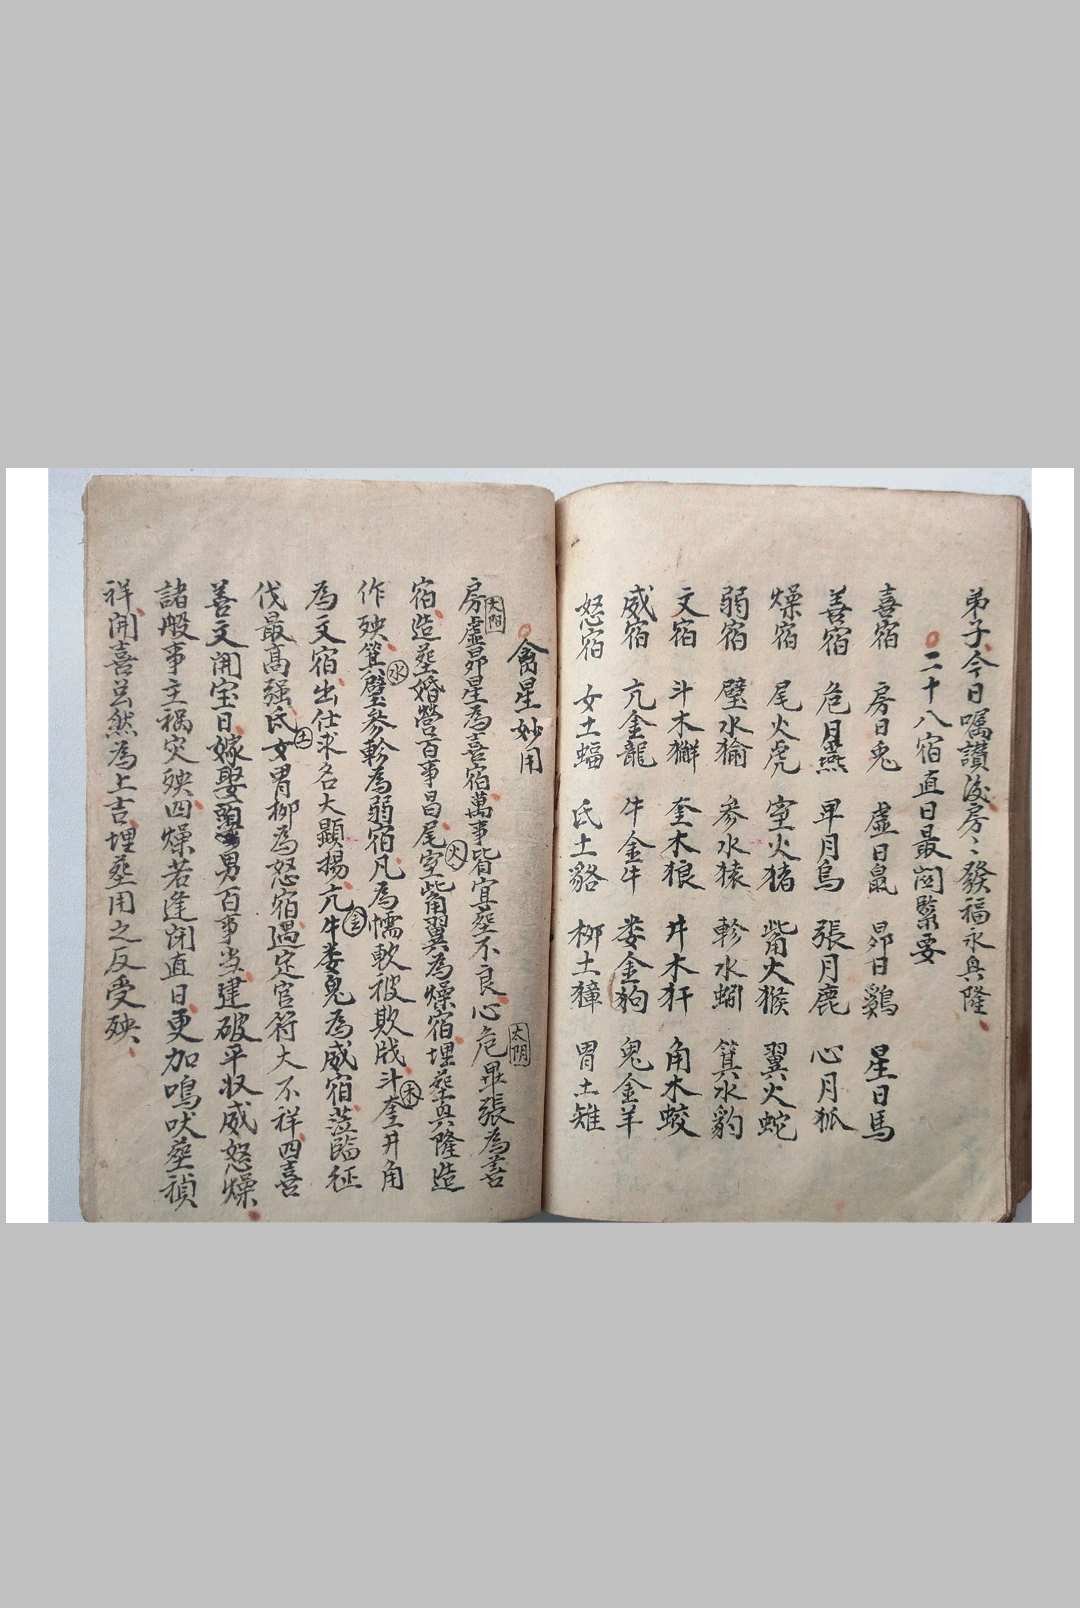 弟子今日嘱讚後房〻發福永兴隆
二十八宿直日最関緊要
喜宿 房日兎 虚日鼠 昴日鷄 星日馬
善宿 危月燕 毕月烏 張月鹿 心月狐
燥宿 尾火虎 室火猪 觜火猴 翼火蛇
弱宿 璧水㺄 參水猿 軫水蚓 箕水豹
文宿 斗木獬 奎木狼 井木犴 角木蛟
威宿 亢金龍 牛金牛 娄金狗 鬼金羊
怒宿 女土蝠 氐土貉 柳土獐 胃土雉
禽星妙用
房虚昴星為喜宿萬事皆宜塟不良心危毕張為善
太陽
太阴
宿造塟婚營百事昌尾室觜翼為燥宿埋塟兴隆造
火
作殃箕璧參軫為弱宿凡為懦軟被欺戕斗奎井角
水
木
為文宿出仕求名大顯揚亢牛娄鬼為威宿蒞臨征
金
伐最高强氐女胃柳為怒宿遇定官符大不祥四喜
土
善文開宝日嫁娶男百事当建破平収威怒燥
諸般事主禍灾殃四燥若逢闭直日更加鳴吠塟禎
祥開喜云然為上吉埋塟用之反受殃